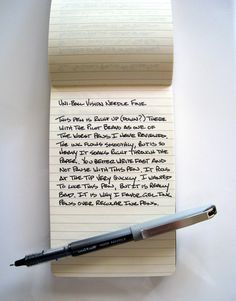 Uni-Ball Vision Needle Fine
This pen is right up (down?) there
with the Pilot Bravo as one of
the worst pens I have reviewed.
The ink flows smoothly, but is so
heavy it soaks right through the
paper. You better write fast and
not pause with this pen. It pools
at the tip very quickly. I wanted
to like this pen, but it is really
bad. It is why I favor gel ink
pens over regular ink pens.